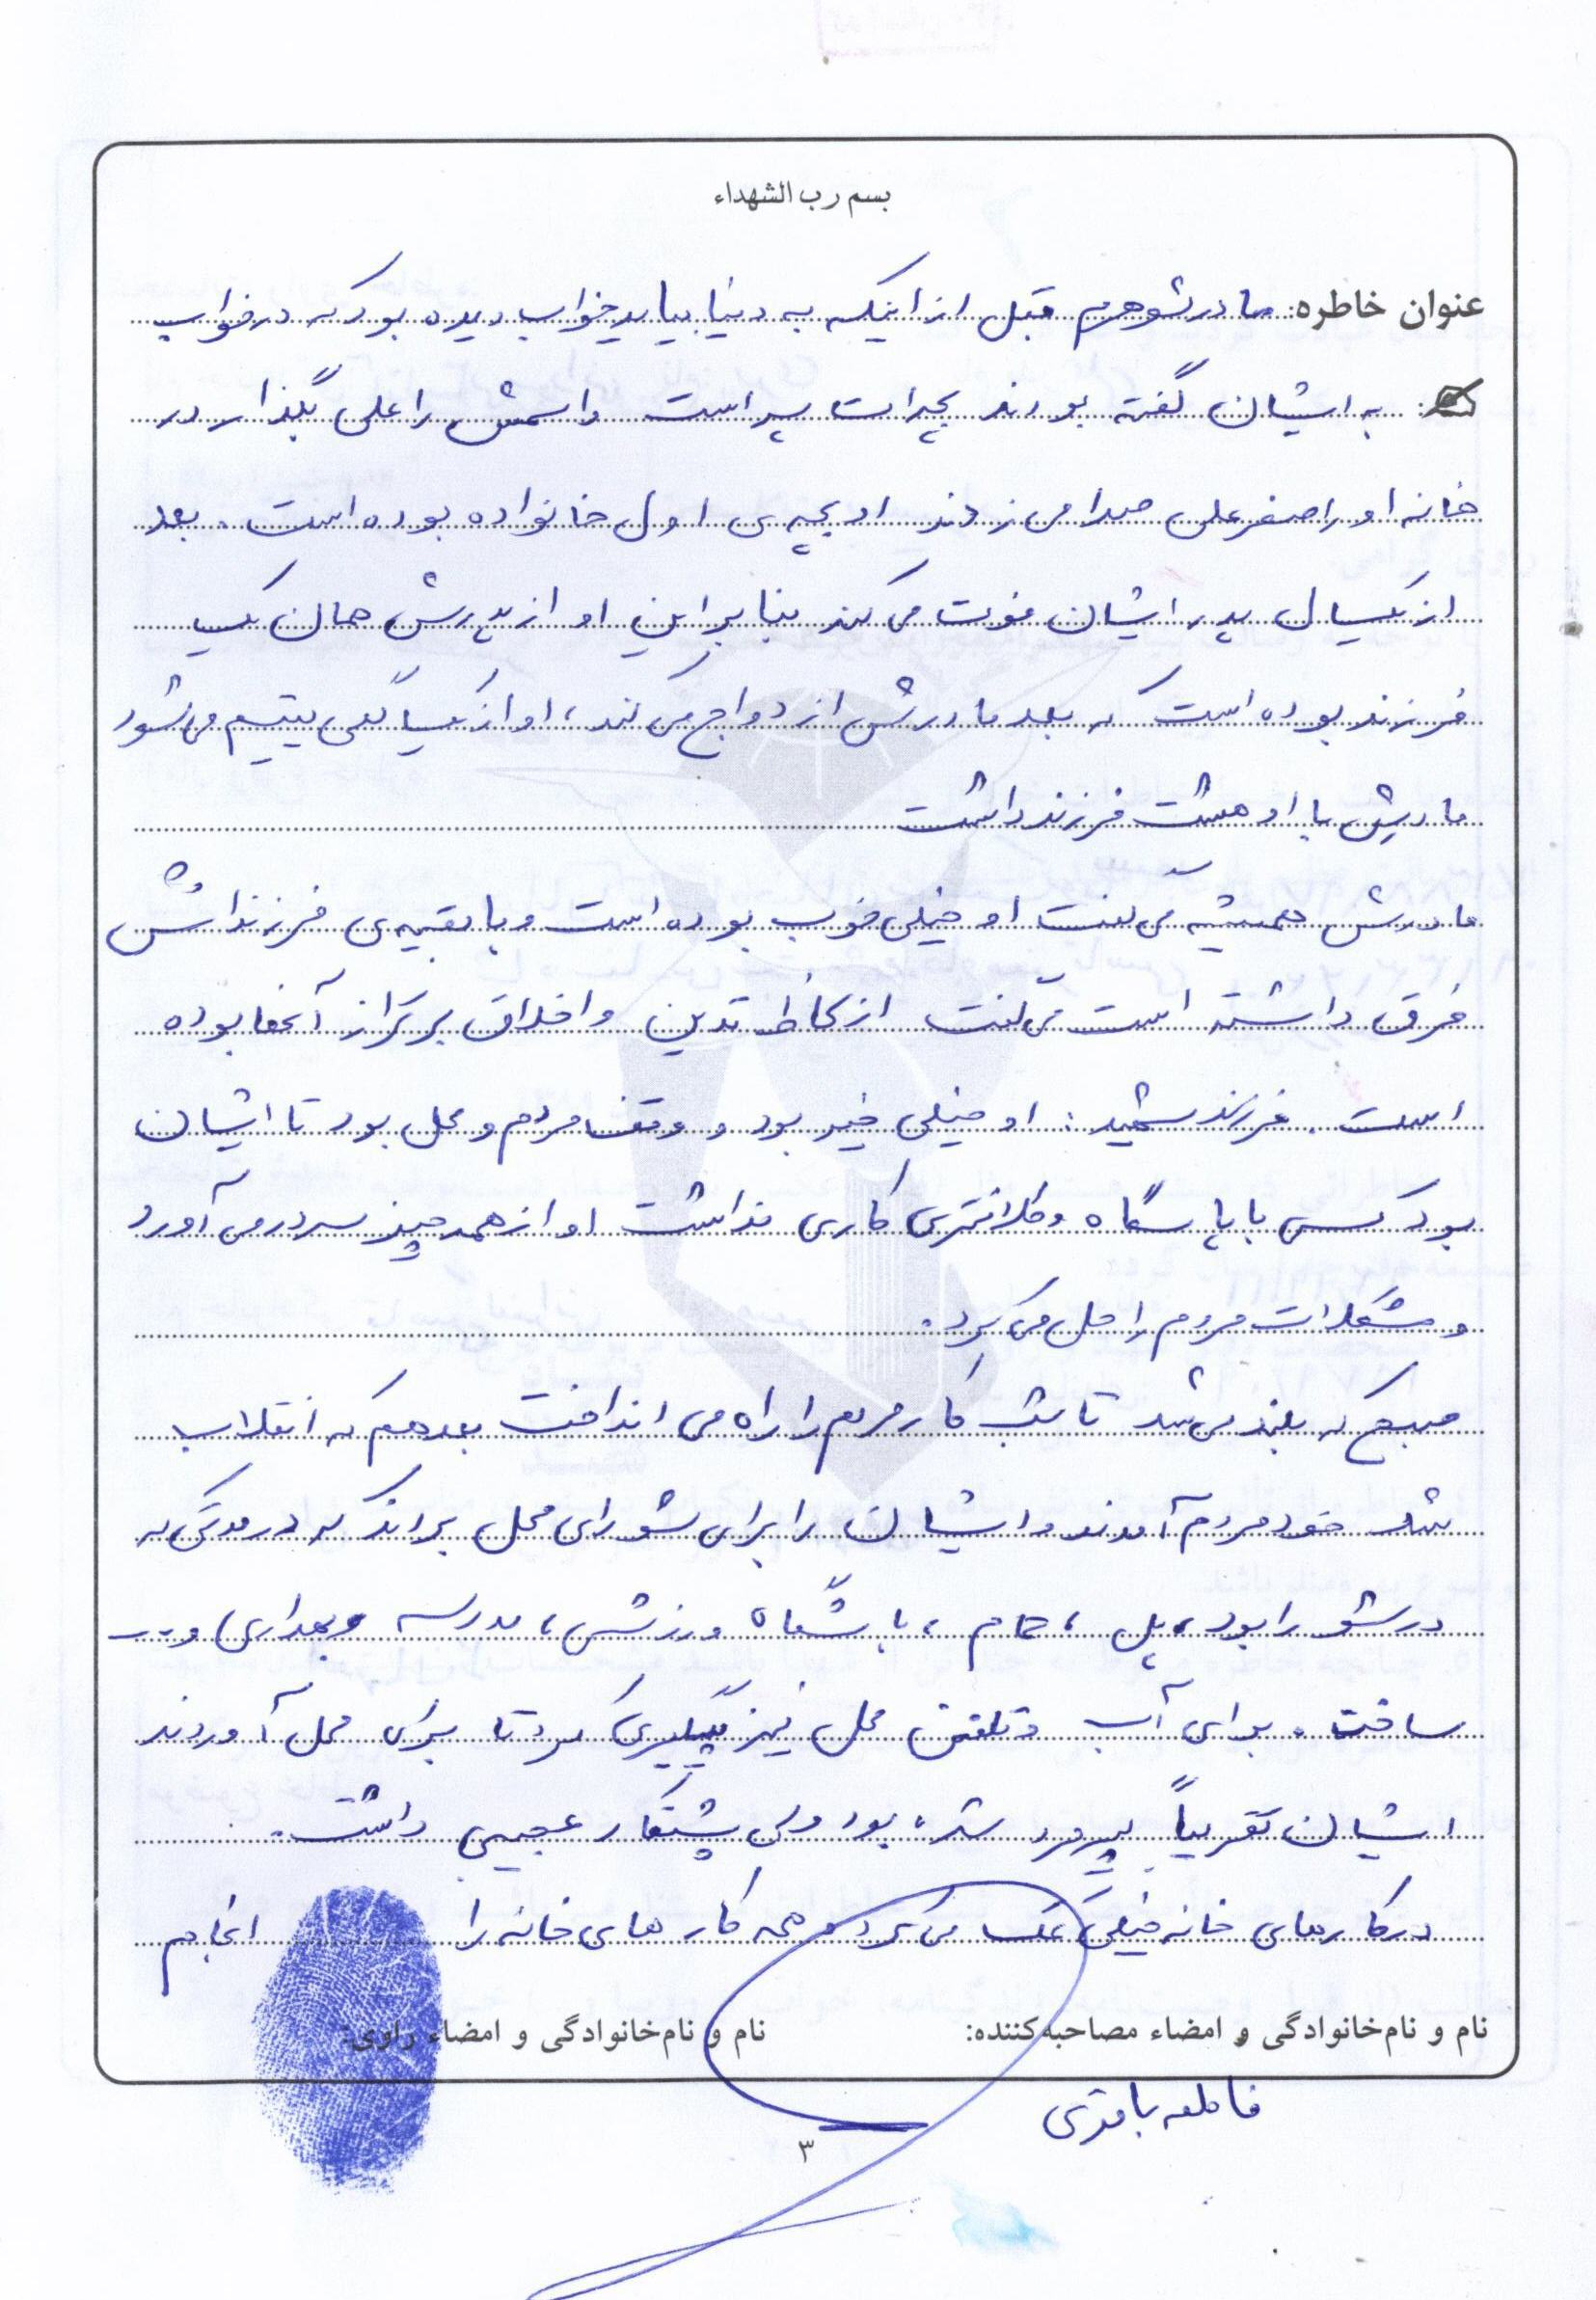 بسم رب الشهداء
عنوان خاطره: مادرشوهرم قبل از اینکه به دنیا بیاید خواب دیده بود که در خواب
به ایشان گفته بودند بچه‌ات پسر است و اسمش را علی بگذار در
خانه او را صفرعلی صدا می‌زدند او بچه‌ی اول خانواده بوده است. بعد
از یکسال پدر ایشان فوت می‌کند بنابراین او از پدرش همان یک
فرزند بوده است که بعد مادرش ازدواج می‌کند، او از یکسالگی یتیم می‌شود
مادرش با او هشت فرزند داشت
مادرش همیشه می‌گفت او خیلی خوب بوده است و با بقیه‌ی فرزندانش
فرق داشته است می‌گفت از لحاظ تدین و اخلاق برتر از آنها بوده
است. فرزند شهید: او خیلی خیر بود و وقف مردم و محل بود تا ایشان
بود کسی با پاسگاه و کلانتری کاری نداشت او از همه چیز سردرمی‌آورد
و مشکلات مردم را حل می‌کرد.
صبح که بلند می‌شد تا شب کار مردم را راه می‌انداخت بعد هم که انقلاب
شد خود مردم آمدند و ایشان را برای شورای محل بردند که در مدتی که
در شورا بود، پل، حمام، باشگاه ورزشی، مدرسه و بهداری و...
ساخت. برای آب و تلفن محل نیز پیگیری کرد تا برای محل آوردند
ایشان تقریباً پیرمرد شده بود ولی پشتکار عجیبی داشت.
در کارهای خانه خیلی کمک می‌کرد و همه کارهای خانه را انجام
نام و نام‌خانوادگی و امضاء مصاحبه‌کننده: نام و نام‌خانوادگی و امضاء راوی:
فاطمه باقری
۳